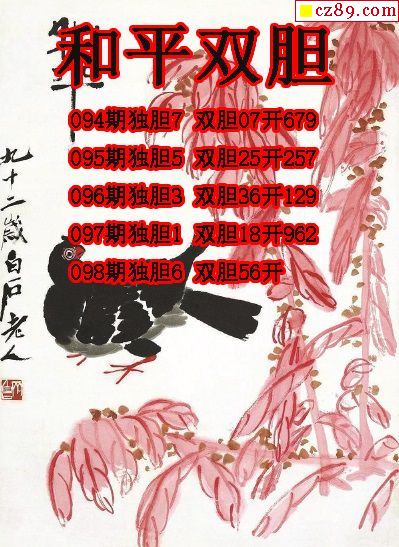 cz89.com
和平双胆
094期独胆7 双胆07开679
095期独胆5 双胆25开257
096期独胆3 双胆36开129
097期独胆1 双胆18开962
098期独胆6 双胆56开
九十二岁白石老人